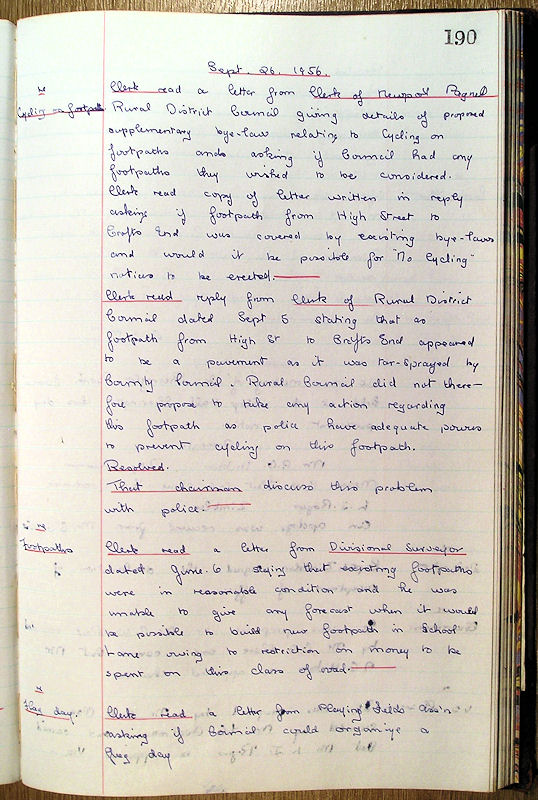 190
Sept. 26. 1956.
Cycling on footpath
Clerk read a letter from Clerk of Newport Pagnell
Rural District Council giving details of proposed
supplementary bye-law relating to Cycling on
footpaths and asking if Council had any
footpaths they wished to be considered.
Clerk read copy of letter written in reply
asking if footpath from High Street to
Crofts End was covered by existing bye-laws
and would it be possible for "No Cycling"
notices to be erected.
Clerk read reply from Clerk of Rural District
Council dated Sept 5 stating that as
footpath from High St to Crofts End appeared
to be a pavement as it was tar-sprayed by
County Council. Rural Council did not there-
fore propose to take any action regarding
this footpath as police have adequate powers
to prevent cycling on this footpath.
Resolved.
That chairman discuss this problem
with police.
Footpaths
Clerk read a letter from Divisional Surveyor
dated June 6 saying that existing footpaths
were in reasonable condition and he was
unable to give any forecast when it would
be possible to build new footpath in School
Lane owing to restriction on money to be
spent on this class of road.
Flag day.
Clerk read a letter from Playing Fields Ass'n
asking if Council could organize a
flag day